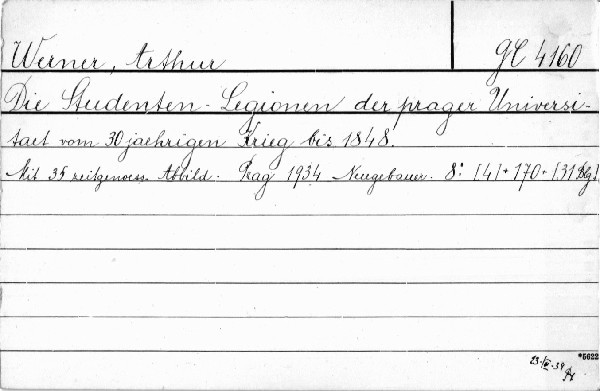 Werner, Arthur
GC 4160
Die Studenten-Legionen der prager Universi-
taet vom 30jaehrigen Krieg bis 1848.
Mit 35 zeitgenoess. Abbild. Prag 1934 Neugebauer. 8° [4]+170+[3]
*5622